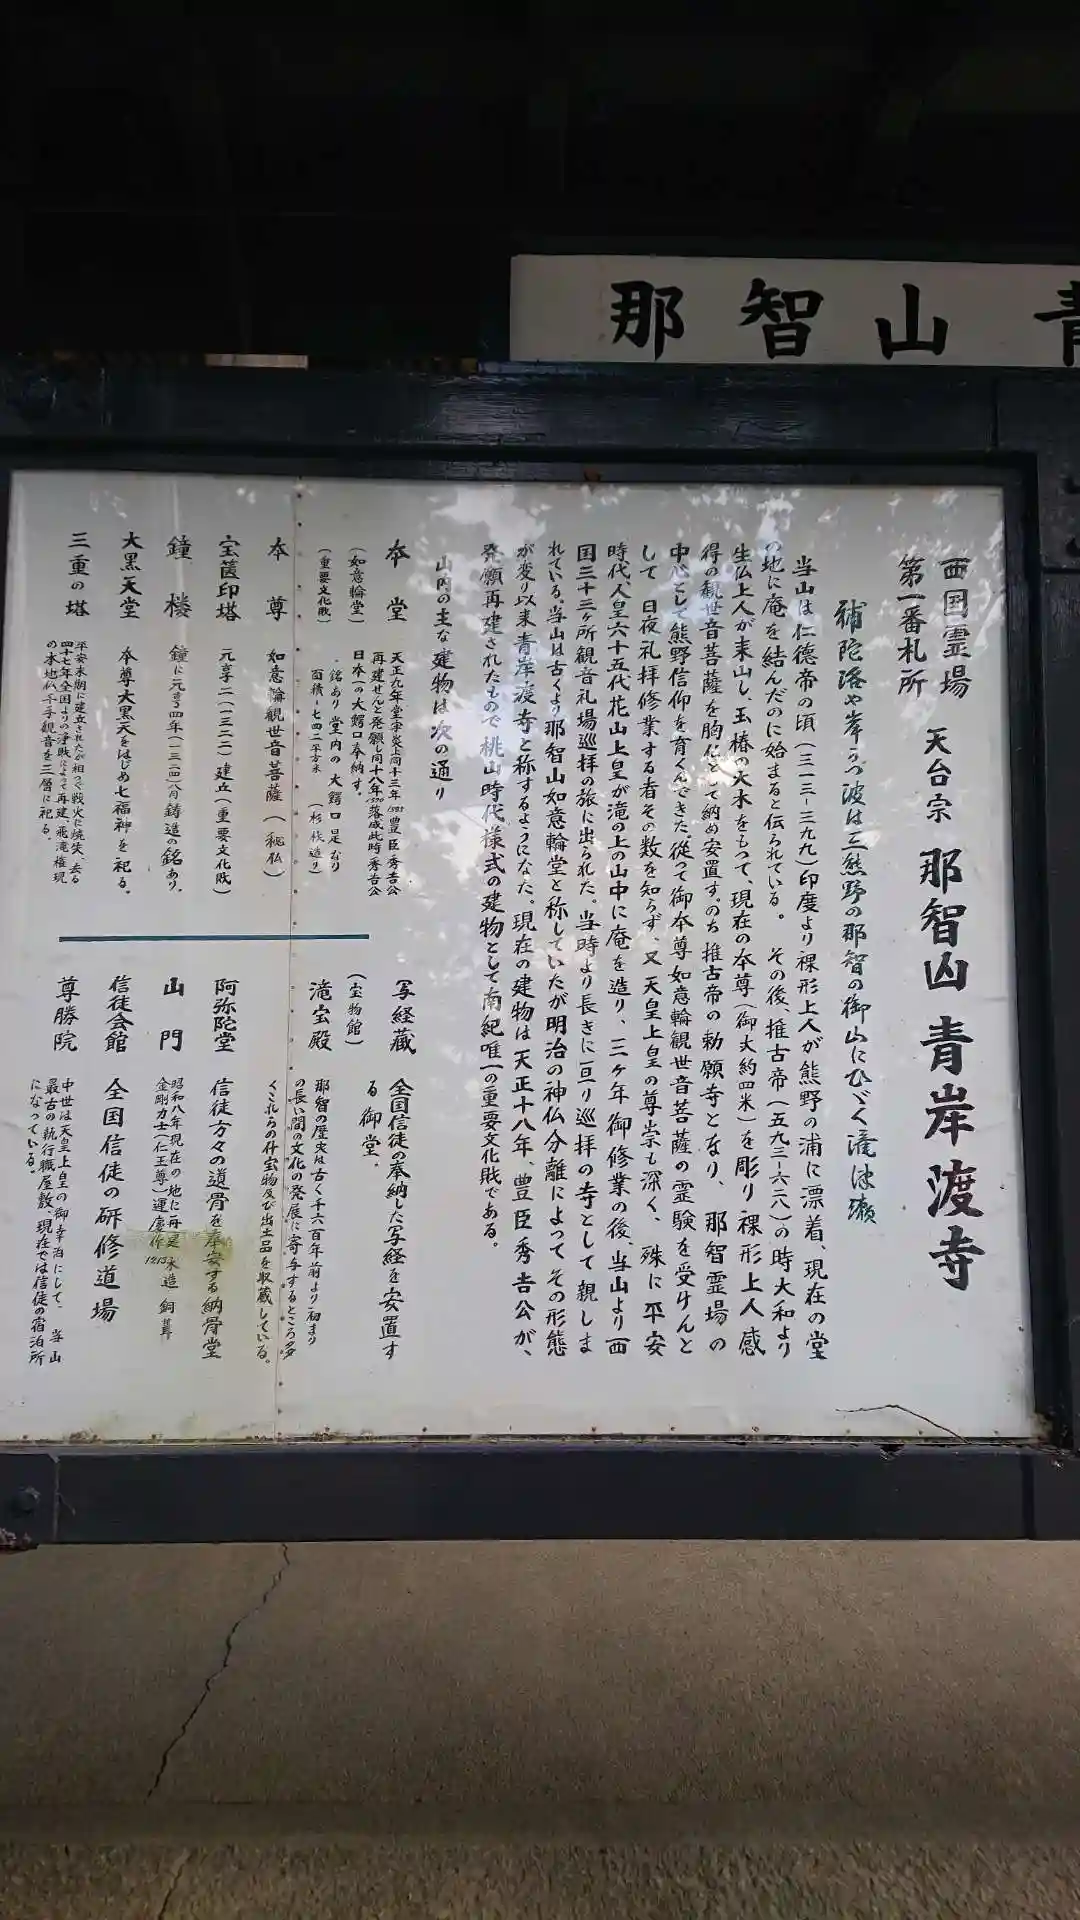 那智山青
西国霊場
第一番札所
天台宗 那智山 青岸渡寺
補陀洛や岸うつ波は三熊野の那智の御山にひゞく滝津瀬
当山は仁徳帝の頃(三一三−三九九)印度より裸形上人が熊野の浦に漂着、現在の堂
の地に庵を結んだのに始まると伝られている。 その後、推古帝(五九三−六二八)の時大和より
生仏上人が来山し、玉椿の大木をもつて、現在の本尊(御丈約四米)を彫り裸形上人感
得の観世音菩薩を胸仏として納め安置す。のち推古帝の勅願寺となり、那智霊場の
中心として熊野信仰を育くんできた。従って御本尊如意輪観世音菩薩の霊験を受けんと
して日夜礼拝修業する者その数を知らず、又天皇上皇の尊崇も深く、殊に平安
時代、人皇六十五代花山上皇が滝の上の山中に庵を造り、三ケ年御修業の後、当山より西
国三十三ヶ所観音礼場巡拝の旅に出られた。当時より長きに亘り巡拝の寺として親しま
れている。当山は古くより那智山如意輪堂と称していたが明治の神仏分離によってその形態
が変り以来青岸渡寺と称するようになた。現在の建物は天正十八年、豊臣秀吉公が、
発願再建されたもので桃山時代様式の建物として南紀唯一の重要文化財である。
山内の主な建物は次の通り
本堂
(如意輪堂)
(重要文化財)
天正九年堂宇炎上同十三年1585豊臣秀吉公
再建せんと発願し同十八年1590落成此時秀吉公
日本一の大鰐口奉納す。
・銘あり堂内の大鰐口是なり
面積−七四二平方米 (杉杮造り)
本尊 如意輪観世音菩薩(秘仏)
宝篋印塔 元亨二(一三二二)建立(重要文化財)
鐘楼 鐘に元亨四年(一三二四)八月鋳造の銘あり。
大黒天堂 本尊大黒天をはじめ七福神を祀る。
三重の塔
平安末期に建立されたが相つぐ戦火に焼失、去る
四十七年全国よりの浄財によって再建、飛滝権現
の本地仏千手観音を三層に祀る。
写経蔵 全国信徒の奉納した写経を安置す
る御堂.
滝宝殿
(宝物館)
那智の歴史は古く千六百年前より初まり
の長い間の文化の発展に寄与するところ多
くこれらの什宝物及び出土品を収蔵している。
阿弥陀堂 信徒方々の遺骨を奉安する納骨堂
山門
昭和八年現在の地に再建 木造 銅葺
金剛力士(仁王尊)運慶作1213
信徒会館 全国信徒の研修道場
尊勝院
中世は天皇上皇の御幸泊にして、当山
最古の執行職屋敷、現在では信徒の宿泊所
になっている。